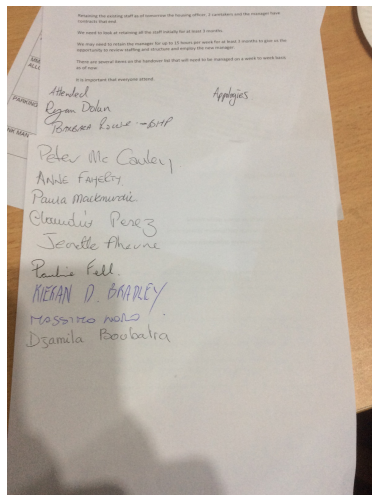 Retaining the existing staff as of tomorrow the housing officer, 3 caretakers and the manager have
We need to look at retaining all the staff initially for at least 3 months.
We may need to retain the manager for up to 15 hours per week for at least 2 months to give us the
opportunity to review staffing and structure and employ the new manager.
There are several items on the handover list that will need to be managed on a week to week basis
as of now.
It is important that everyone attend.
Attended Apologies
Dolan
BARBARA
Peter Mc Cauley
ANNE FAHERTY
Paula
Claudia Perez
Jeanette Aherne
Pauline Fell.
KIERAN D. BRADLEY
MASSIMO
Dzamila Boubatra
PARKING
NK MAN